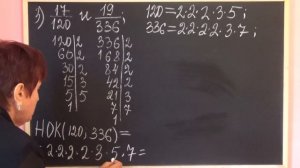 3) 17/120 и 19/336; 120=2·2·2·3·5;
336=2·2·2·2·3·7;
120|2 336|2
60|2 168|2
30|2 84|2
15|3 42|2
5|5 21|3
1 7|7
1
НОК(120,336)=
=2·2·2·2·3·5·7=